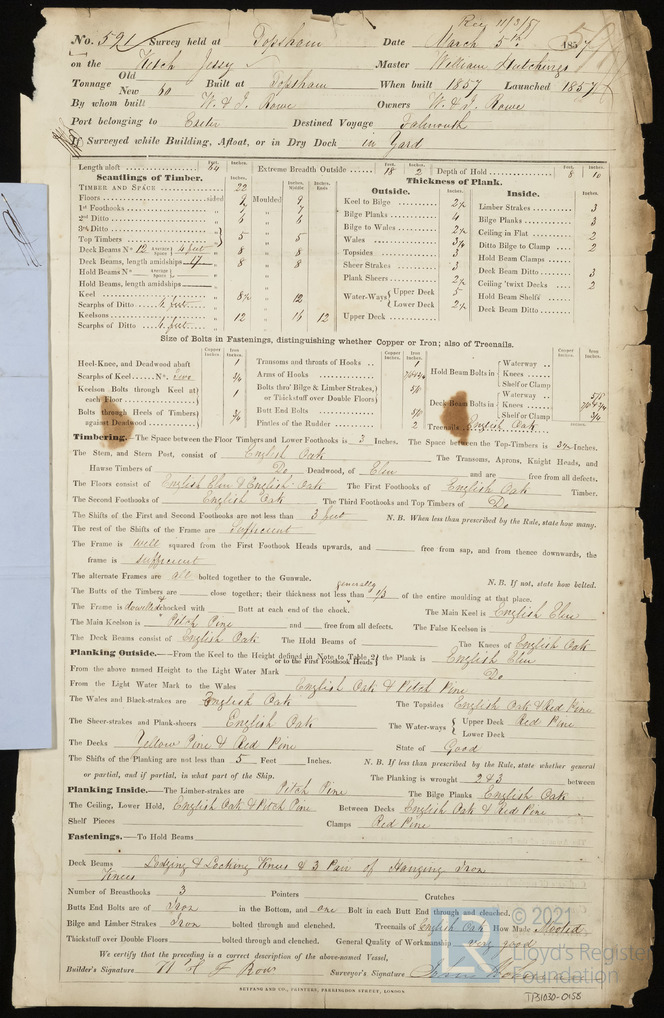 Rec 11/3/57
No. 521 Survey held at Topsham Date March 5th 1857
on the Ketch Jessy Master William Hutchings
Tonnage Old New 60 Built at Topsham When built 1857 Launched 1857
By whom built W. & J. Rowe Owners W. & J. Rowe
Port belonging to Exeter Destined Voyage Falmouth
If Surveyed while Building, Afloat, or in Dry Dock in Yard
Length aloft 64 Extreme Breadth Outside 18 2 Depth of Hold 8 10
Scantlings of Timber. Thickness of Plank.
Outside. Inside.
TIMBER AND SPACE 22
Floors sided 9 Moulded 9
1st Foothooks 7 7
2nd Ditto 6 6
3rd Ditto
Top Timbers 5 5
Deck Beams No. 12 Average Space 4 feet 8 8
Deck Beams, length amidships 17 8 8
Hold Beams No. Average Space
Hold Beams, length amidships
Keel 8½ 12
Scarphs of Ditto 4 feet
Keelsons 12 14 12
Scarphs of Ditto 4 feet
Keel to Bilge 2½
Bilge Planks 4
Bilge to Wales 2½
Wales 3½
Topsides 3
Sheer Strakes 3
Plank Sheers 2½
Water-Ways Upper Deck 5
Lower Deck 2½
Upper Deck
Limber Strakes 3
Bilge Planks 3
Ceiling in Flat 2
Ditto Bilge to Clamp 2
Hold Beam Clamps
Deck Beam Ditto 3
Ceiling 'twixt Decks 2
Hold Beam Shelfs
Deck Beam Ditto
Size of Bolts in Fastenings, distinguishing whether Copper or Iron; also of Treenails.
Heel-Knee, and Deadwood abaft 1
Scarphs of Keel No. five 3/4
Keelson Bolts through Keel at each Floor 1
Bolts through Heels of Timbers against Deadwood 3/4
Transoms and throats of Hooks 1
Arms of Hooks
Bolts thro' Bilge & Limber Strakes, or Thickstuff over Double Floors 5/8
Butt End Bolts 5/8
Pintles of the Rudder 2
Hold Beam Bolts in Waterway
Knees
Shelf or Clamp
Deck Beam Bolts in Waterway 5/8
Knees
Shelf or Clamp 3/4
Treenails English Oak
Timbering.—The Space between the Floor Timbers and Lower Foothooks is 3 Inches. The Space between the Top-Timbers is 3½ Inches.
The Stem, and Stern Post, consist of English Oak The Transoms, Aprons, Knight Heads, and
Hawse Timbers of Do Deadwood, of Elm and are free from all defects.
The Floors consist of English Elm & English Oak The First Foothooks of English Oak Timber.
The Second Foothooks of English Oak The Third Foothooks and Top Timbers of Do
The Shifts of the First and Second Foothooks are not less than 3 feet N.B. When less than prescribed by the Rule, state how many.
The rest of the Shifts of the Frame are Sufficient
The Frame is well squared from the First Foothook Heads upwards, and free from sap, and from thence downwards, the
frame is sufficient
The alternate Frames are all bolted together to the Gunwale. N.B. If not, state how bolted.
The Butts of the Timbers are close together; their thickness not less generally than 1/3 of the entire moulding at that place.
The Frame is dowelled & chocked with Butt at each end of the chock. The Main Keel is English Elm
The Main Keelson is Pitch Pine and free from all defects. The False Keelson is
The Deck Beams consist of English Oak The Hold Beams of The Knees of English Oak
Planking Outside.—From the Keel to the Height defined in Note to Table 2, or to the First Foothook Heads the Plank is English Elm
From the above named Height to the Light Water Mark Do
From the Light Water Mark to the Wales English Oak & Pitch Pine
The Wales and Black-strakes are English Oak The Topsides English Oak & Red Pine
The Sheer-strakes and Plank-sheers English Oak The Water-ways Upper Deck Red Pine
Lower Deck
The Decks Yellow Pine & Red Pine State of Good
The Shifts of the Planking are not less than 5 Feet Inches. N.B. If less than prescribed by the Rule, state whether general
or partial, and if partial, in what part of the Ship. The Planking is wrought 2 & 3 between
Planking Inside.—The Limber-strakes are Pitch Pine The Bilge Planks English Oak
The Ceiling, Lower Hold, English Oak & Pitch Pine Between Decks English Oak & Red Pine
Shelf Pieces Clamps Red Pine
Fastenings.—To Hold Beams
Deck Beams Lodging & Locking Knees & 3 Pair of Hanging Iron
Knees
Number of Breasthooks 3 Pointers Crutches
Butts End Bolts are of Iron in the Bottom, and one Bolt in each Butt End through and clenched.
Bilge and Limber Strakes Iron bolted through and clenched. Treenails of English Oak How Made Mooted
Thickstuff over Double Floors bolted through and clenched. General Quality of Workmanship very good
We certify that the preceding is a correct description of the above-named Vessel,
Builder's Signature W & J Row Surveyor's Signature
SEYFANG AND CO., PRINTERS, FARRINGDON STREET, LONDON
© 2021
Lloyd's Register
Foundation
LR
TP31030-0158